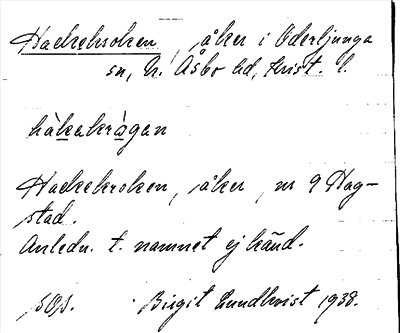 Hackekroken, åker i Oderljunga
sn, N. Åsbo hd, Krist. l.
håkakrågan
Hackekroken, åker, nr 9 Hag-
stad.
Anledn. t. namnet ej känd.
Birgit Lundkvist 1938.